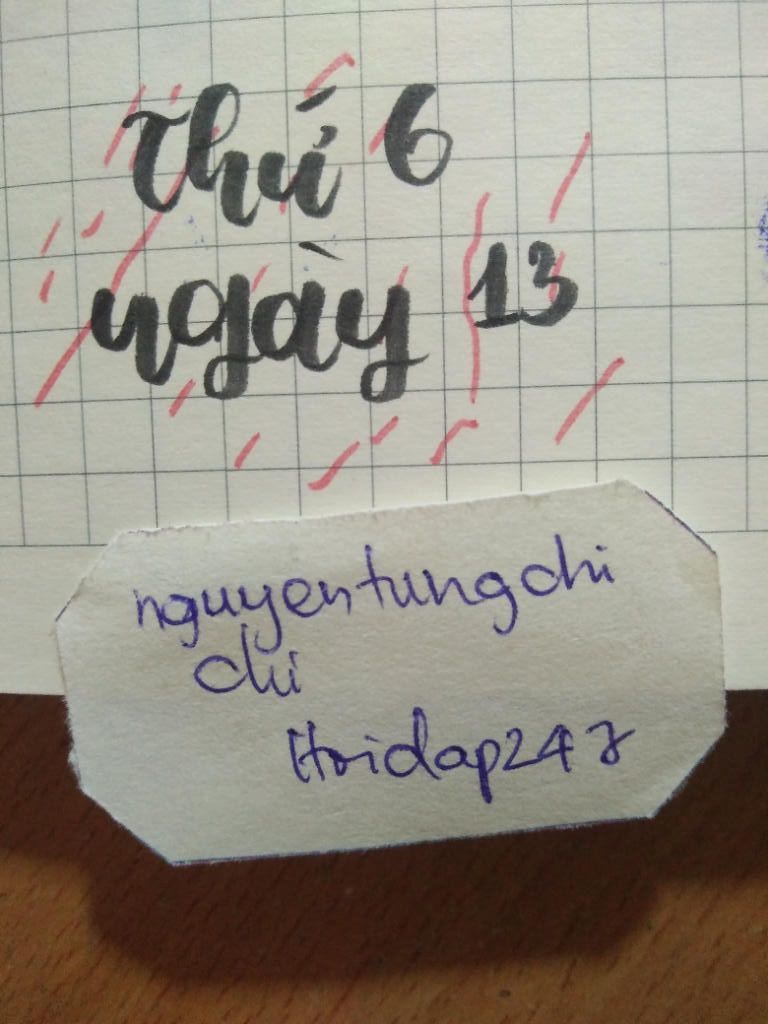 thứ 6
ngày 13
nguyentungchi
chi
Hoidap247